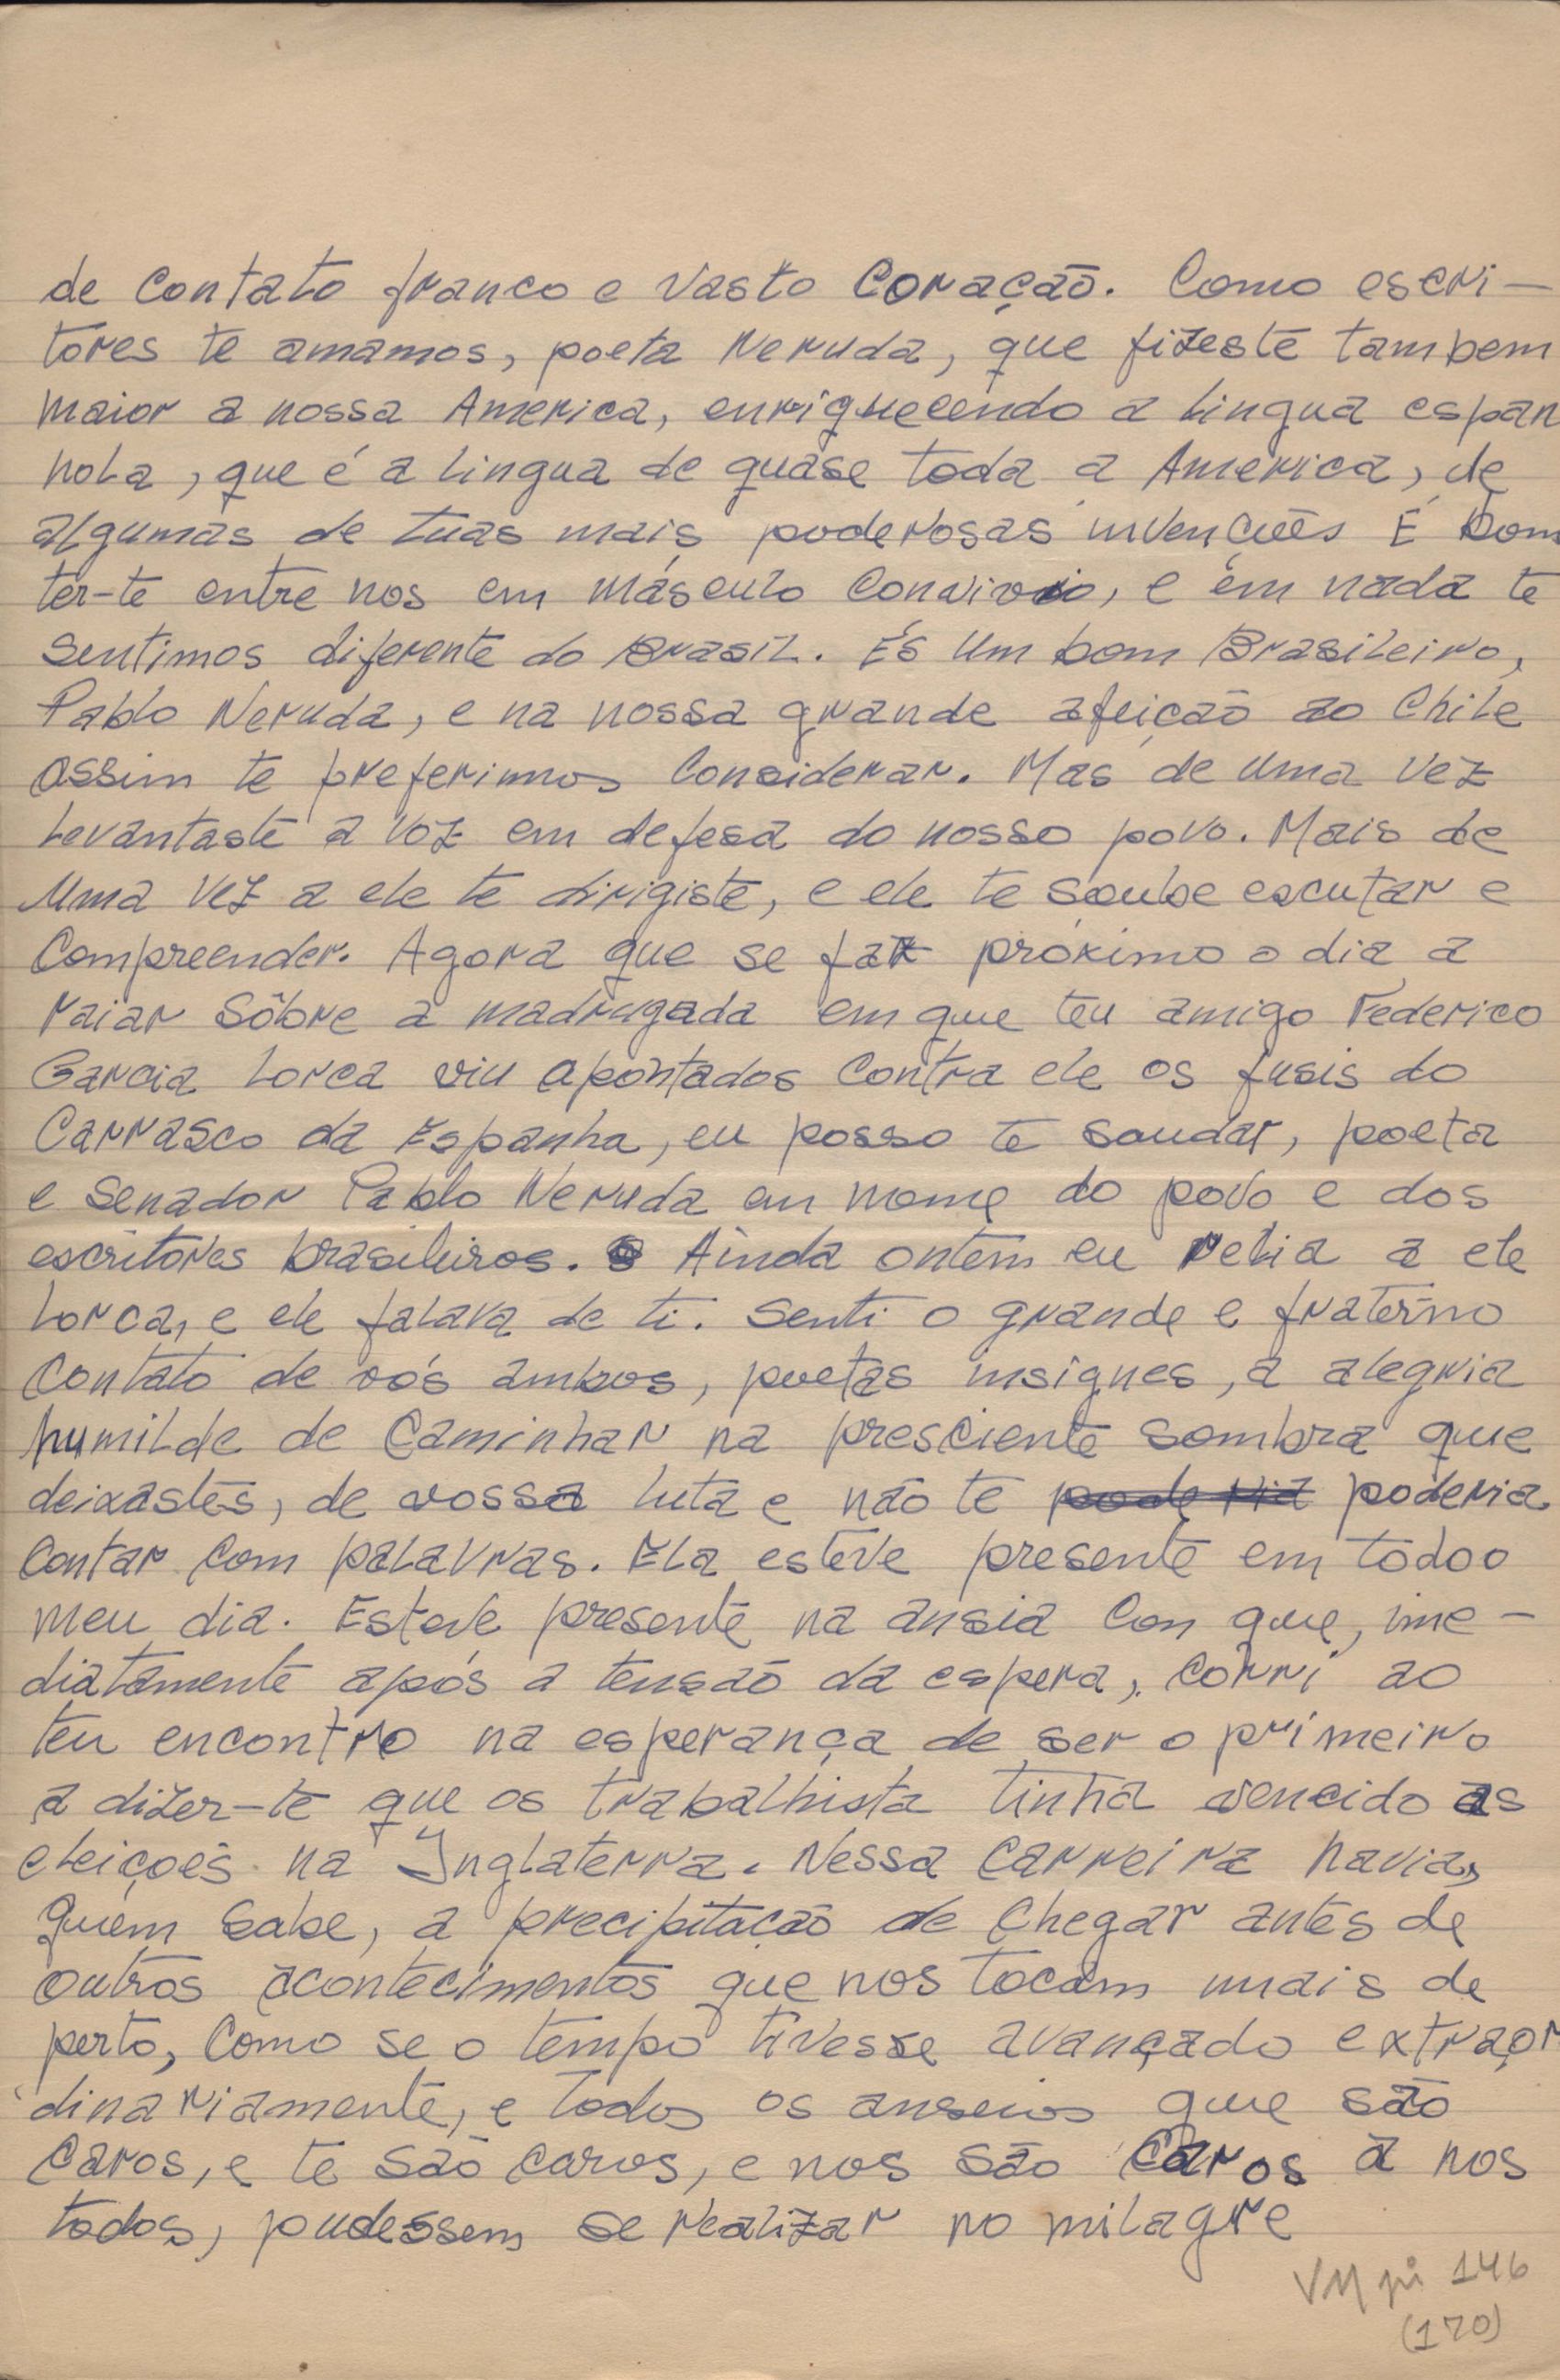 de contato franco e vasto coração. Como escri-
tores te amamos, poeta Neruda, que fizeste tambem
maior a nossa America, enriquecendo a lingua espan
hola, que é a lingua de quase toda a America, de
algumas de tuas mais poderosas invenções É bom
ter-te entre nos em másculo convivio, e em nada te
sentimos diferente do Brasil. És um bom Brasileiro,
Pablo Neruda, e na nossa grande afeição ao Chile
assim te preferimos considerar. Mas de uma vez
levantaste a voz em defesa do nosso povo. Mais de
uma vez a ele te dirigiste, e ele te soube escutar e
compreender. Agora que se faz próximo o dia a
raiar sôbre a madrugada em que teu amigo Federico
Garcia Lorca viu apontados contra ele os fusis do
Carrasco da Espanha, eu posso te saudar, poeta
e senador Pablo Neruda em nome do povo e dos
escritores brasileiros. Ainda ontem eu relia a ele
Lorca, e ele falava de ti. Senti o grande e fraterno
contato de vós ambos, poetas insignes, a alegria
humilde de caminhar na presciente sombra que
deixastes, de vossa luta e não te poderia poderia
contar com palavras. Ela esteve presente em todo o
meu dia. Esteve presente na ansia con que, ime-
diatamente após a tensão da espera, corri ao
teu encontro na esperança de ser o primeiro
a dizer-te que os trabalhista tinha vencido as
eleições na Inglaterra. Nessa carreira havia,
quem sabe, a precipitação de chegar antes de
outros acontecimentos que nos tocam mais de
perto, como se o tempo tivesse avançado extraor
dinariamente, e todos os anseios que são
caros, e te são caros, e nos são caros a nos
todos, pudessem se realizar no milagre
VM pi 146
(170)